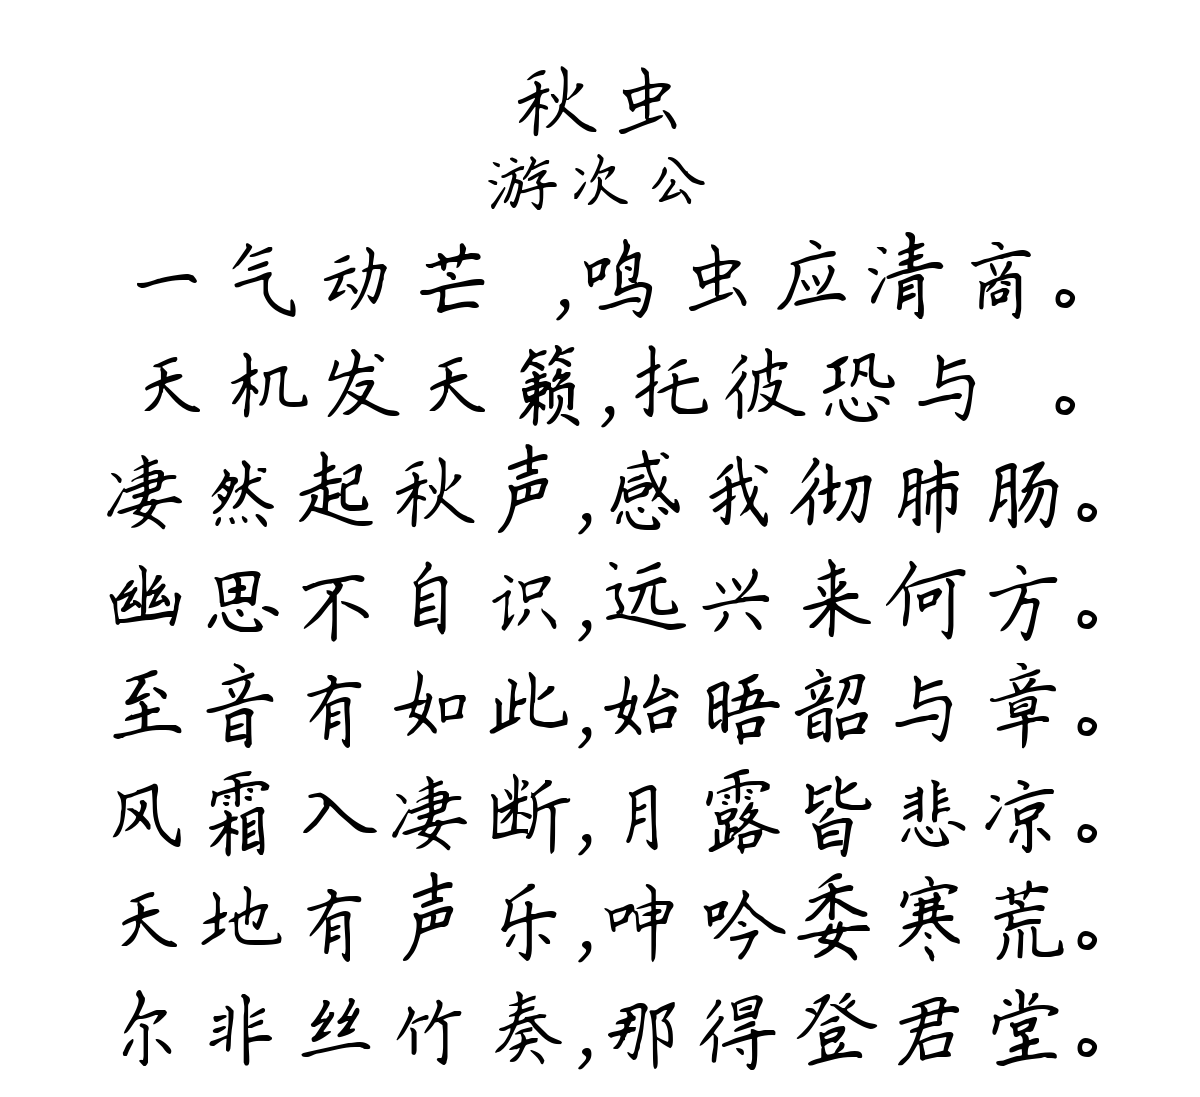 秋虫
游次公
一气动芒 ,鸣虫应清商。
天机发天籁,托彼恐与 。
凄然起秋声,感我彻肺肠。
幽思不自识,远兴来何方。
至音有如此,始晤韶与章。
风霜入凄断,月露皆悲凉。
天地有声乐,呻吟委寒荒。
尔非丝竹奏,那得登君堂。